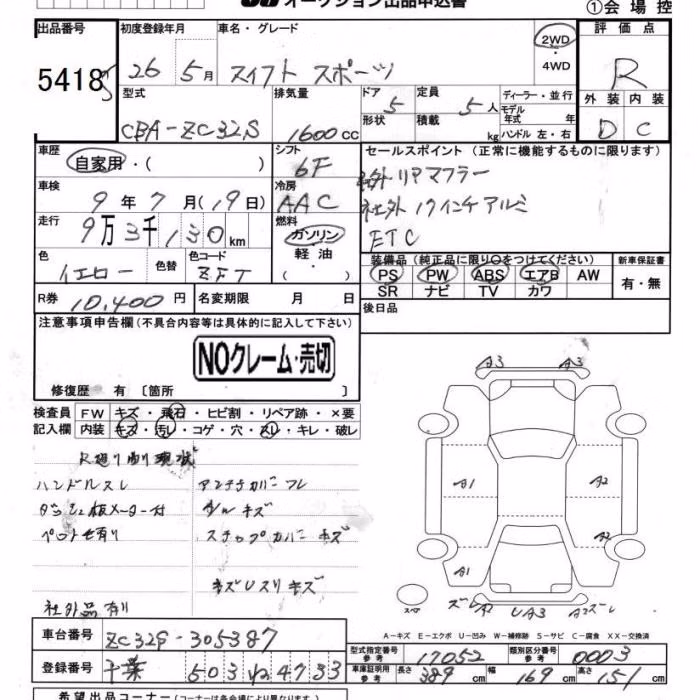 オークション出品申込書
①会場控
出品番号 初度登録年月 車名・グレード 評価点
5418 26年5月 スイフト スポーツ 2WD・4WD R
型式 排気量 ドア形状 定員 積載 ディーラー・並行 外装 内装
CBA-ZC32S 1600cc 5 5人 kg モデル年式 年 ハンドル 左・右 D C
車歴 自家用・( ) シフト 6F セールスポイント (正常に機能するものに限ります)
車検 9年7月(19日) 冷房 AAC 社外リヤマフラー
社外17インチアルミ
走行 9万3千130km 燃料 ガソリン・軽油・( ) ETC
色 イエロー 色替 色コード ZFT 装備品(純正品に限り○をつけてください) 新車保証書
PS PW ABS エアB AW 有・無
SR ナビ TV カワ
R券 10,400円 名変期限 月 日 後日品
注意事項申告欄(不具合内容等は具体的に記入して下さい)
NOクレーム・売切
修復歴 有 〔箇所 〕
検査員記入欄 FW キズ・飛石・ヒビ割・リペア跡・×要
内装 キズ・汚レ・コゲ・穴・スレ・キレ・破レ
ハンドルスレ アンテナカバーフレ
ダッシュ板メーター付 グルキズ
ペット毛有り ステップカバーキズ
キズUスリキズ
社外品有り
A3 A3
A1 A2
A2
A1
スペア ズレA2 UA3 A2ズレ
A-キズ E-エクボ U-凹み W-補修跡 S-サビ C-腐食 XX-交換済
車台番号 ZC32S-305387 型式指定番号 参考 17052 類別区分番号 参考 0003
登録番号 千葉 503 ね 4733 車庫証明用 参考 長さ 389cm 幅 169cm 高さ 151cm
希望出品コーナー(コーナーは各会場により異なります。)